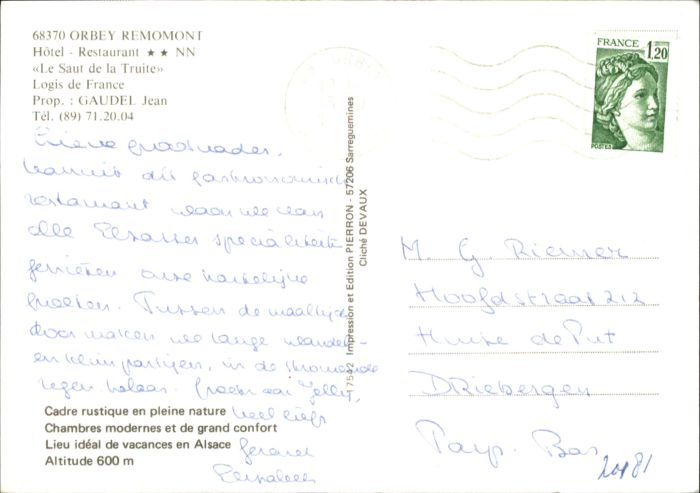 68370 ORBEY REMOMONT
Hôtel - Restaurant ★ ★ NN
«Le Saut de la Truite»
Logis de France
Prop. : GAUDEL Jean
Tél. (89) 71.20.04
Lieve
dit gastronomische
restaurant waar we van
alle Elzasser specialiteiten
genieten onze hartelijke
groeten. Tussen de maaltijden
door maken we lange wandel-
en klimpartijen, in de stromende
regen helaas.
heel liefs
Gerard
Cadre rustique en pleine nature
Chambres modernes et de grand confort
Lieu idéal de vacances en Alsace
Altitude 600 m
17542 Impression et Edition PIERRON - 57206 Sarreguemines
Cliché DEVAUX
FRANCE 1,20
M. G. Riemer
Hoofdstraat 212
Huize de Put
DRIEBERGEN
Pays. Bas